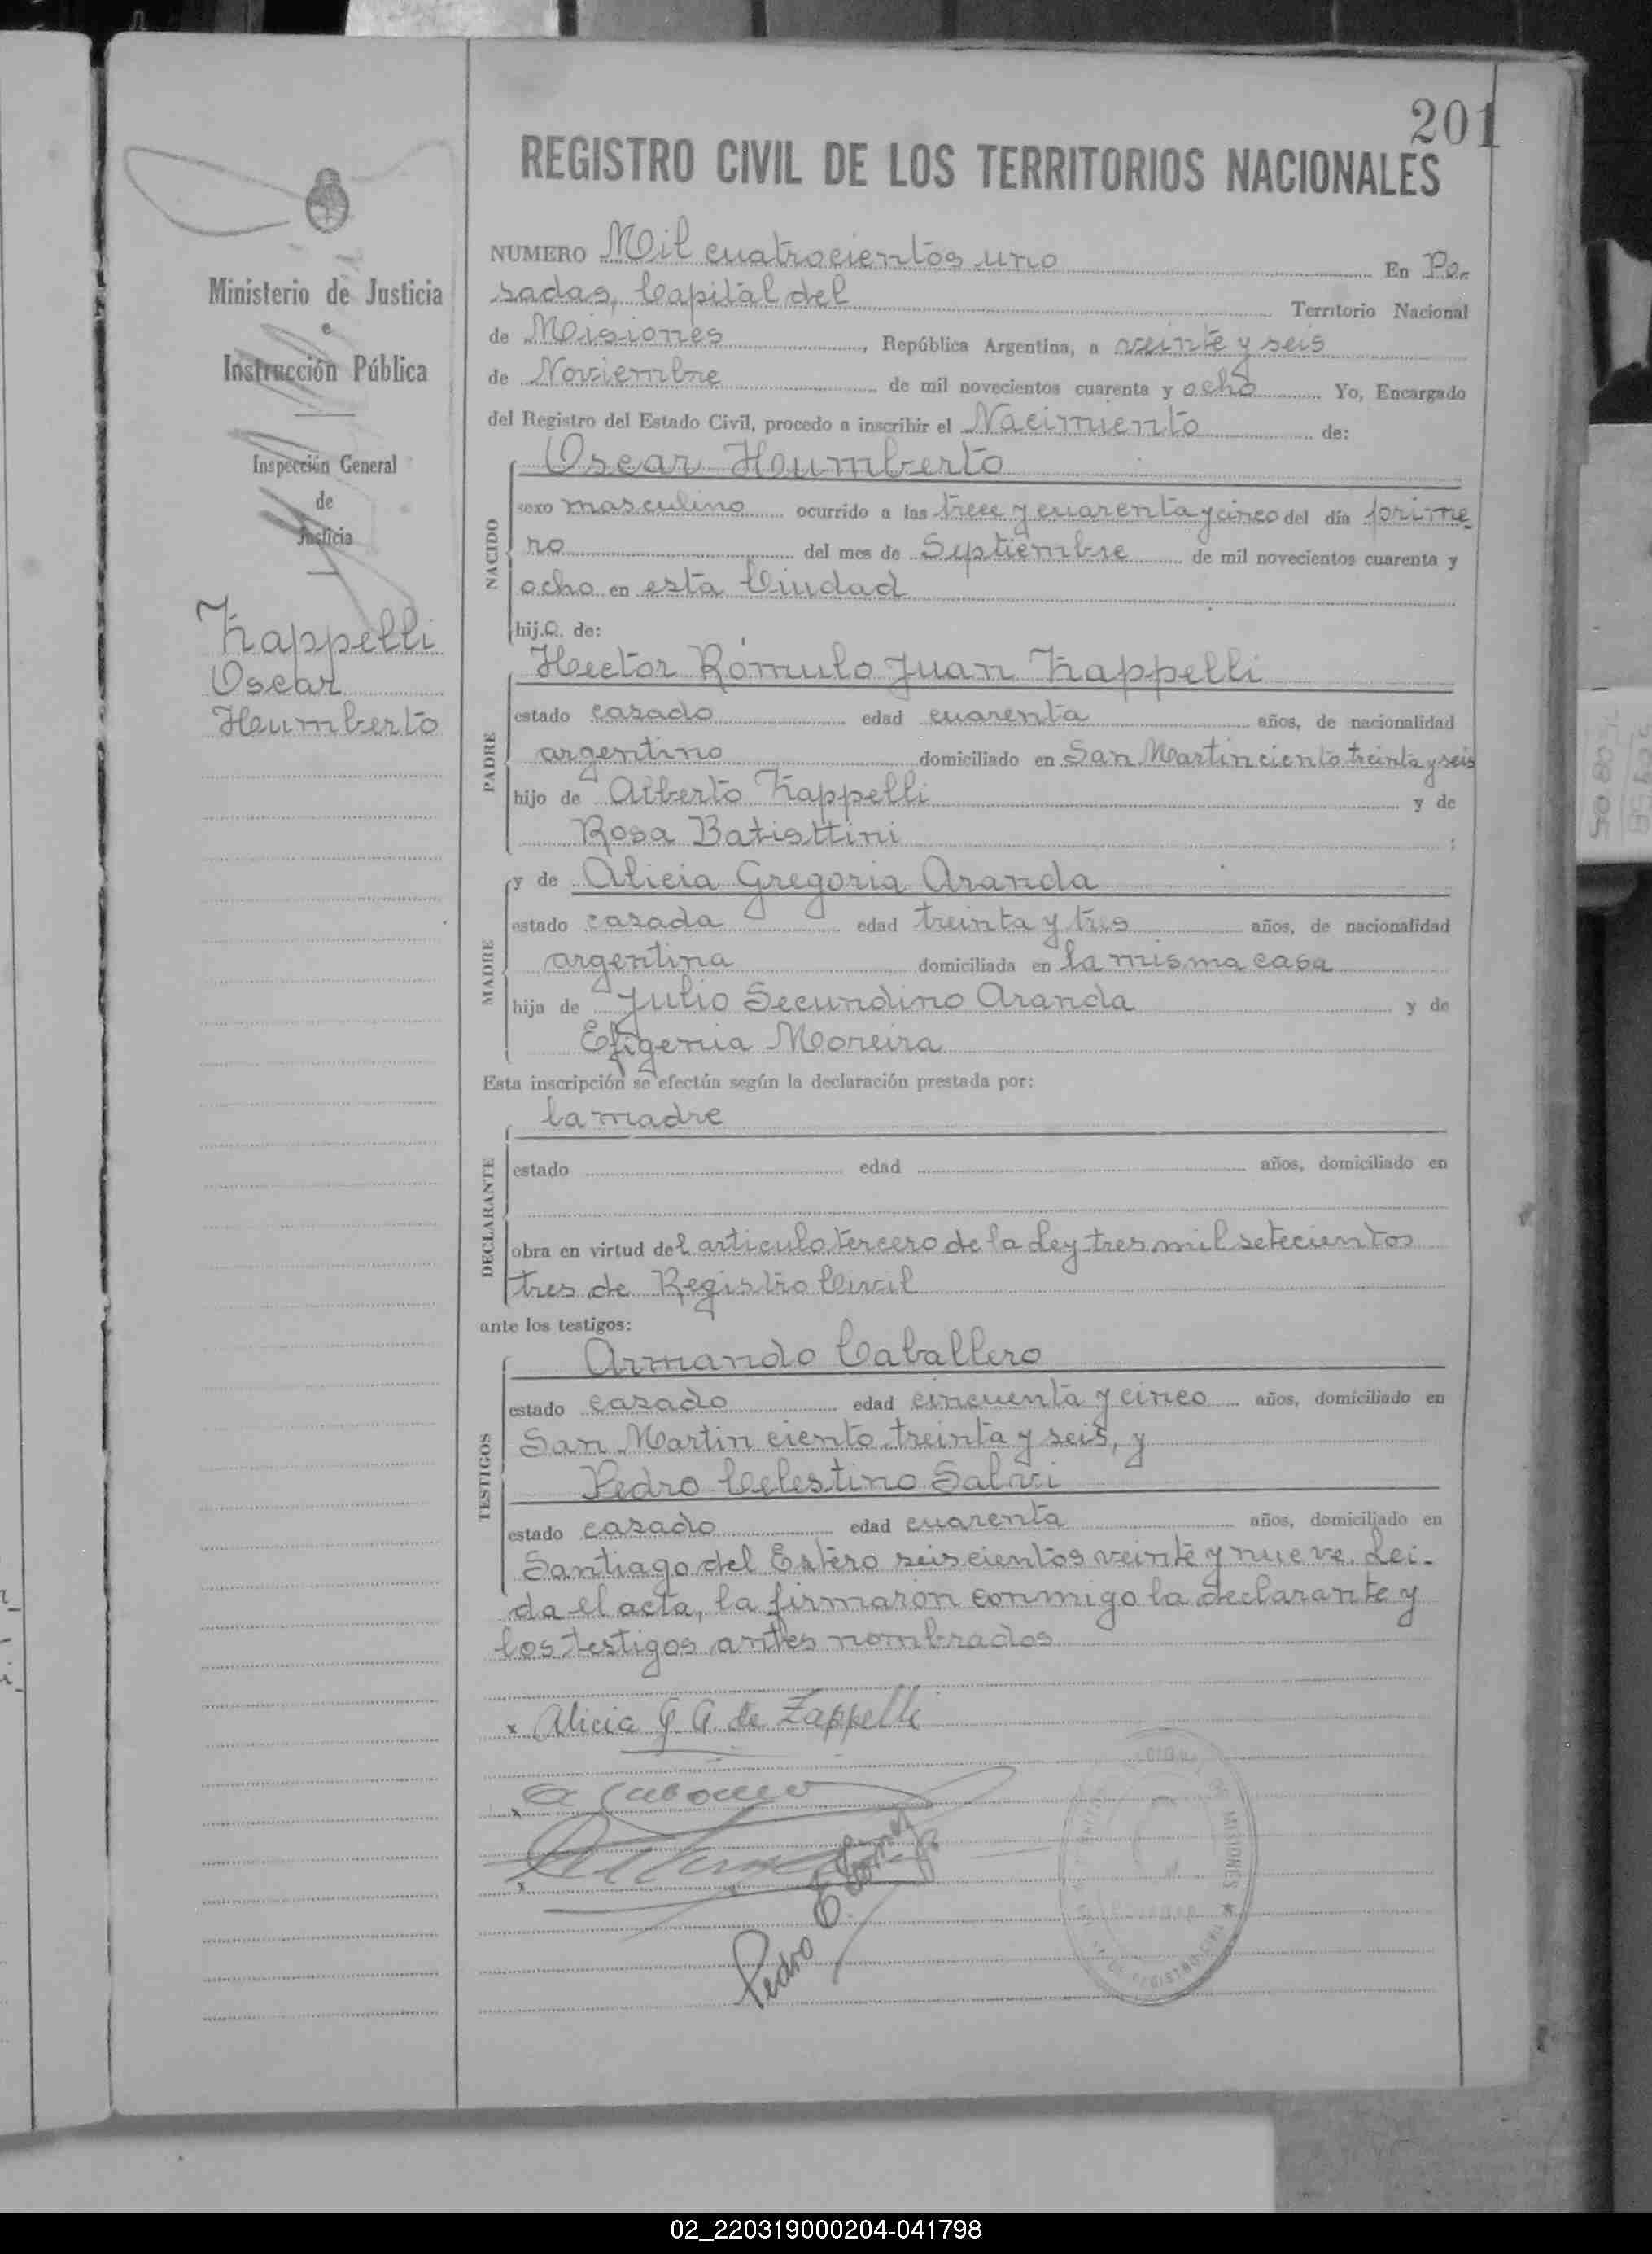 201
REGISTRO CIVIL DE LOS TERRITORIOS NACIONALES
Ministerio de Justicia
e
Instrucción Pública
Inspección General
de
Justicia
Zappelli
Oscar
Humberto
NUMERO Mil cuatrocientos uno En Po-
sadas, Capital del Territorio Nacional
de Misiones, República Argentina, a veinte y seis
de Noviembre de mil novecientos cuarenta y ocho Yo, Encargado
del Registro del Estado Civil, procedo a inscribir el Nacimiento de:
Oscar Humberto
NACIDO
sexo masculino ocurrido a las trece y cuarenta y cinco del día prime
ro del mes de Septiembre de mil novecientos cuarenta y
ocho en esta Ciudad
hijo de:
Hector Rómulo Juan Zappelli
PADRE
estado casado edad cuarenta años, de nacionalidad
argentino domiciliado en San Martin ciento treinta y seis
hijo de Alberto Zappelli y de
Rosa Batisttini ;
MADRE
y de Alicia Gregoria Aranda
estado casada edad treinta y tres años, de nacionalidad
argentina domiciliada en la misma casa
hija de Julio Secundino Aranda y de
Efigenia Moreira
Esta inscripción se efectúa según la declaración prestada por:
la madre
DECLARANTE
estado edad años, domiciliado en
obra en virtud del articulo tercero de la Ley tres mil setecientos
tres de Registro Civil
ante los testigos:
Armando Caballero
TESTIGOS
estado casado edad cincuenta y cinco años, domiciliado en
San Martin ciento treinta y seis, y
Pedro Celestino Salvi
estado casado edad cuarenta años, domiciliado en
Santiago del Estero seiscientos veinte y nueve. Lei-
da el acta, la firmaron conmigo la declarante y
los testigos antes nombrados
x Alicia G A de Zappelli
Pedro E. Gomez
MISIONES
02_220319000204-041798